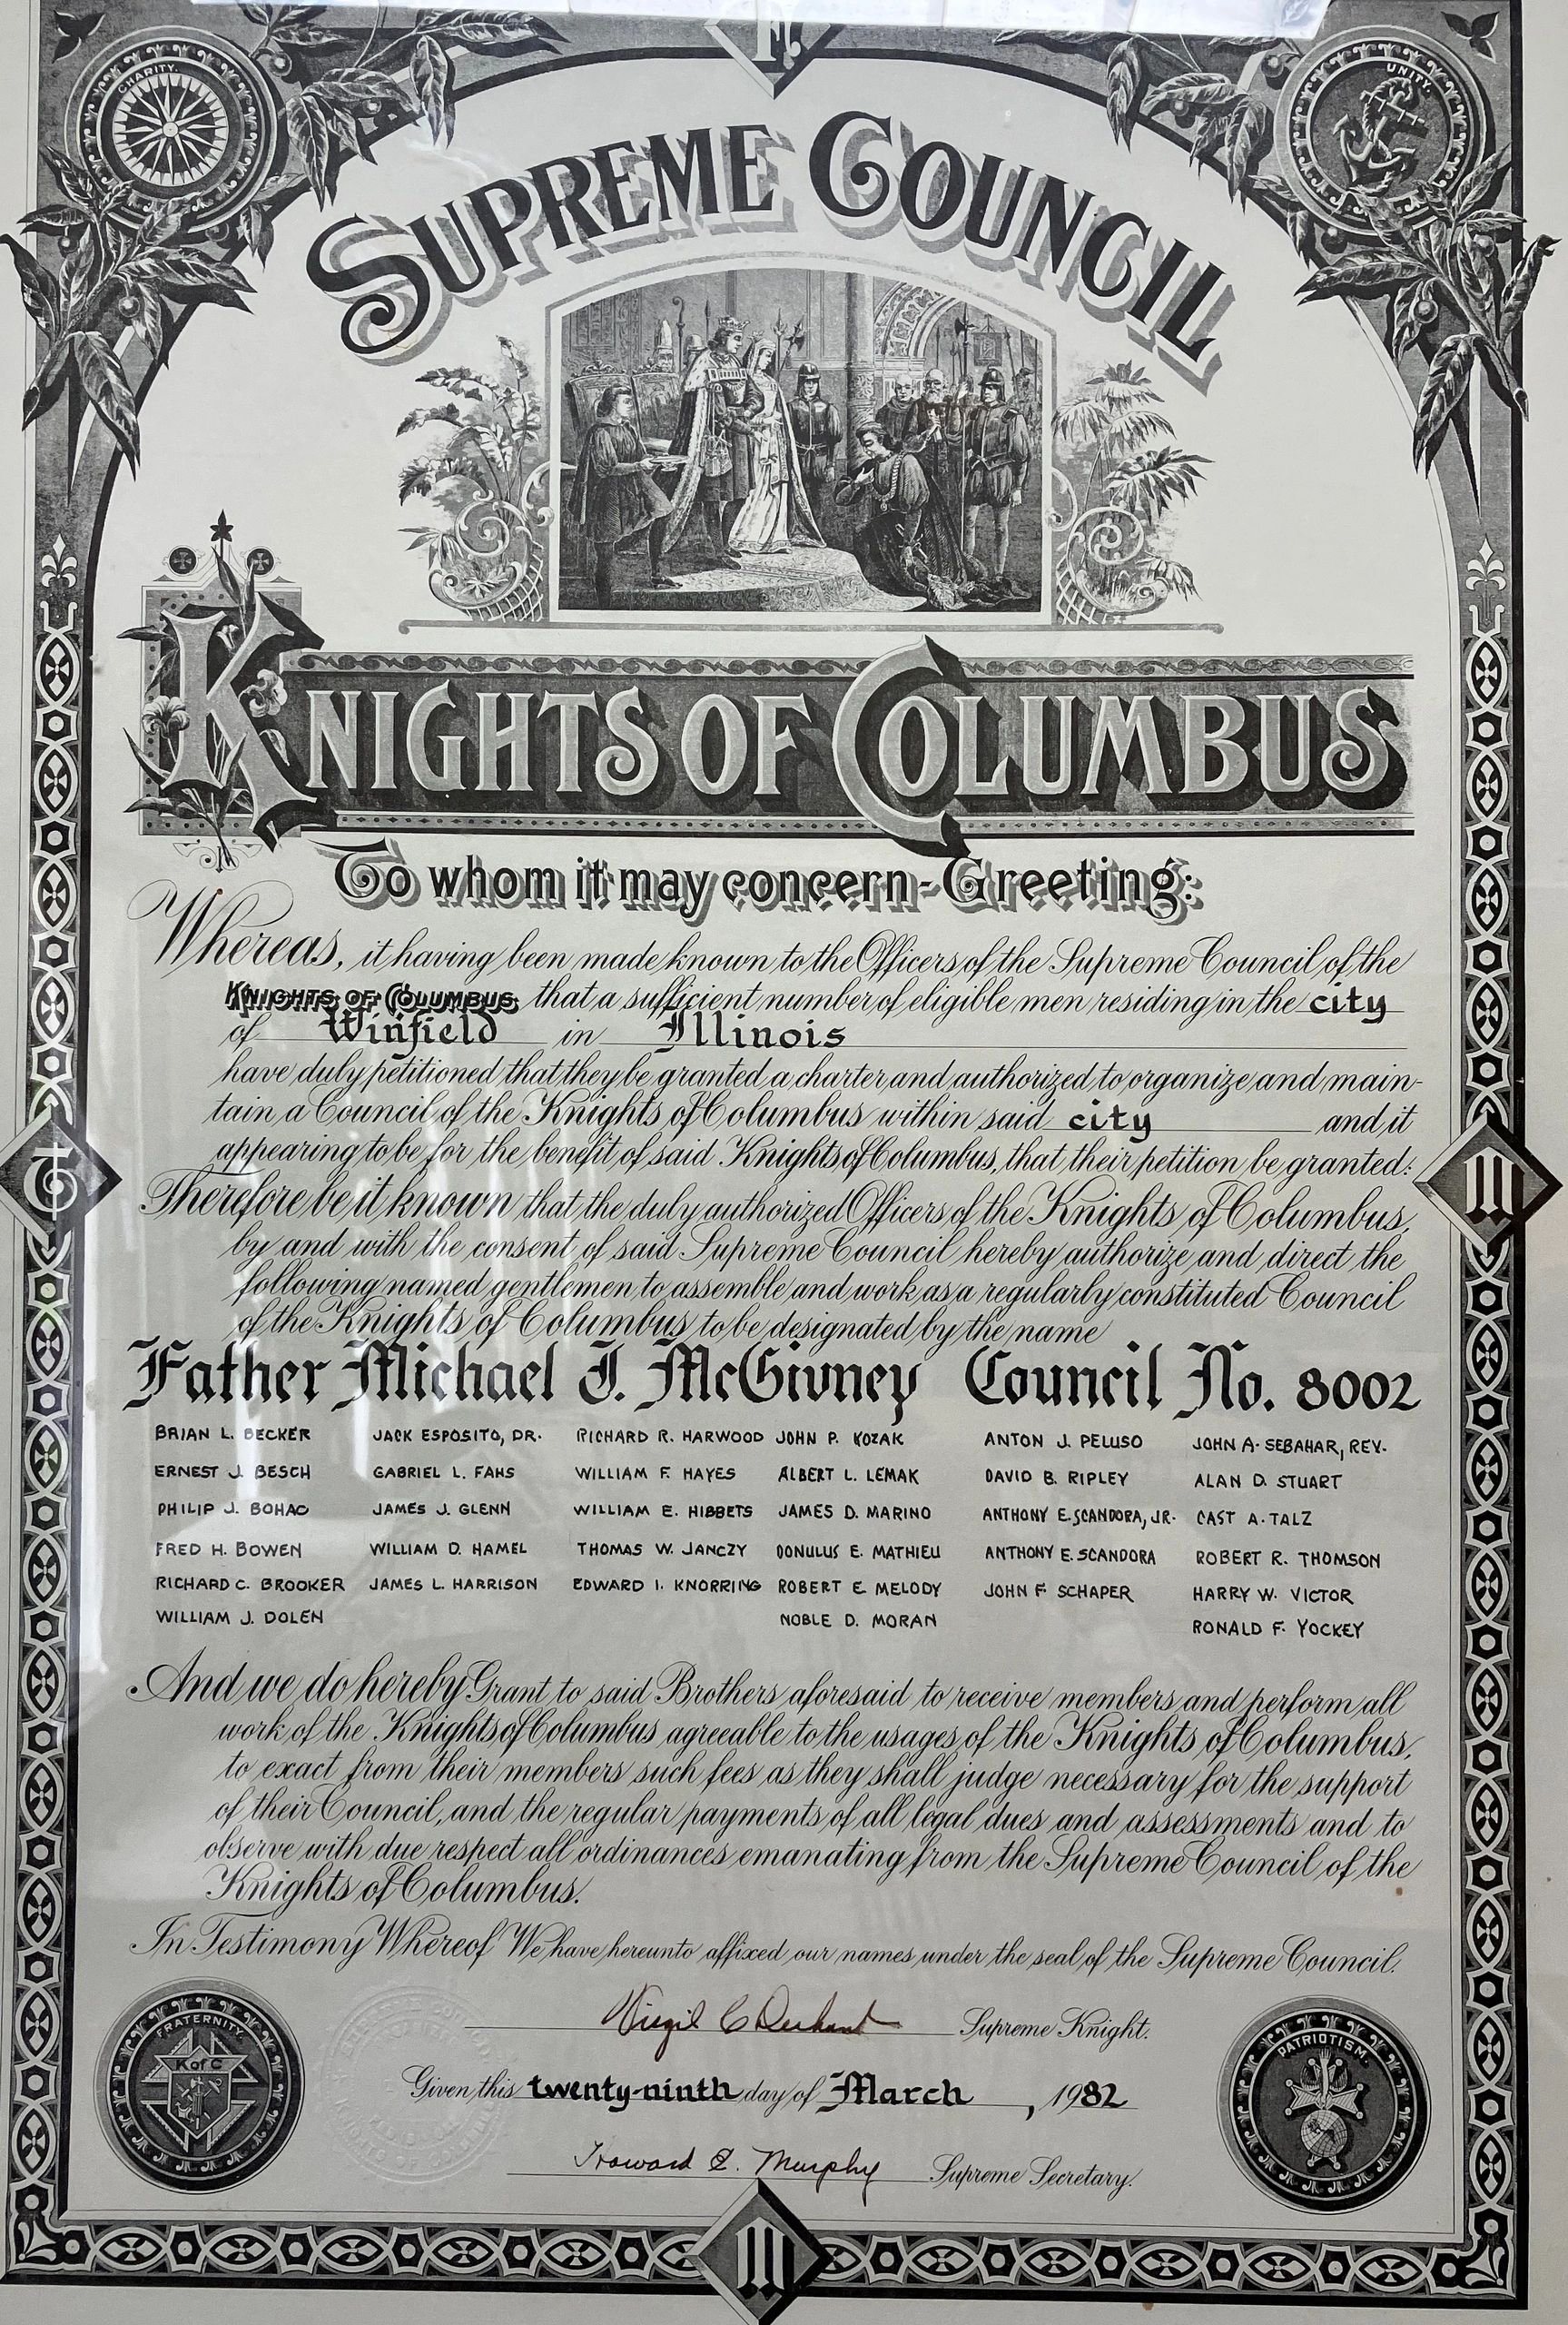 CHARITY.
UNITY.
SUPREME COUNCIL
KNIGHTS OF COLUMBUS
To whom it may concern - Greeting:
Whereas, it having been made known to the Officers of the Supreme Council of the
KNIGHTS OF COLUMBUS that a sufficient number of eligible men residing in the city
of Winfield in Illinois
have duly petitioned that they be granted a charter and authorized to organize and main-
tain a Council of the Knights of Columbus within said city and it
appearing to be for the benefit of said Knights of Columbus, that their petition be granted:
Therefore be it known that the duly authorized Officers of the Knights of Columbus,
by and with the consent of said Supreme Council hereby authorize and direct the
following named gentlemen to assemble and work as a regularly constituted Council
of the Knights of Columbus to be designated by the name
Father Michael J. McGivney Council No. 8002
BRIAN L. BECKER JACK ESPOSITO, DR. RICHARD R. HARWOOD JOHN P. KOZAK ANTON J. PELUSO JOHN A. SEBAHAR, REV.
ERNEST J. BESCH GABRIEL L. FAHS WILLIAM F. HAYES ALBERT L. LEMAK DAVID B. RIPLEY ALAN D. STUART
PHILIP J. BOHAC JAMES J. GLENN WILLIAM E. HIBBETS JAMES D. MARINO ANTHONY E. SCANDORA, JR. CAST A. TALZ
FRED H. BOWEN WILLIAM D. HAMEL THOMAS W. JANCZY DONULUS E. MATHIEU ANTHONY E. SCANDORA ROBERT R. THOMSON
RICHARD C. BROOKER JAMES L. HARRISON EDWARD I. KNORRING ROBERT E. MELODY JOHN F. SCHAPER HARRY W. VICTOR
WILLIAM J. DOLEN NOBLE D. MORAN RONALD F. YOCKEY
And we do hereby Grant to said Brothers aforesaid to receive members and perform all
work of the Knights of Columbus agreeable to the usages of the Knights of Columbus,
to exact from their members such fees as they shall judge necessary for the support
of their Council, and the regular payments of all legal dues and assessments and to
observe with due respect all ordinances emanating from the Supreme Council of the
Knights of Columbus.
In Testimony Whereof We have hereunto affixed our names under the seal of the Supreme Council.
Virgil C Dechant Supreme Knight.
FRATERNITY.
K of C
PATRIOTISM.
Given this twenty-ninth day of March, 1982
Howard E. Murphy Supreme Secretary.